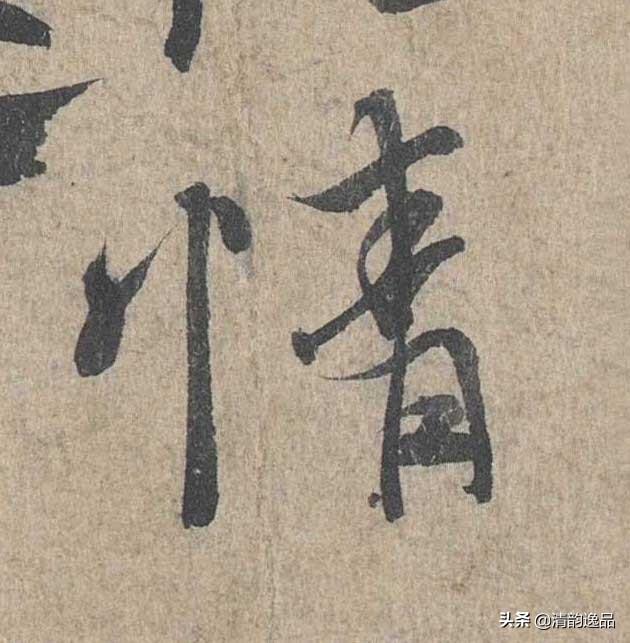 情
头条 @清韵逸品